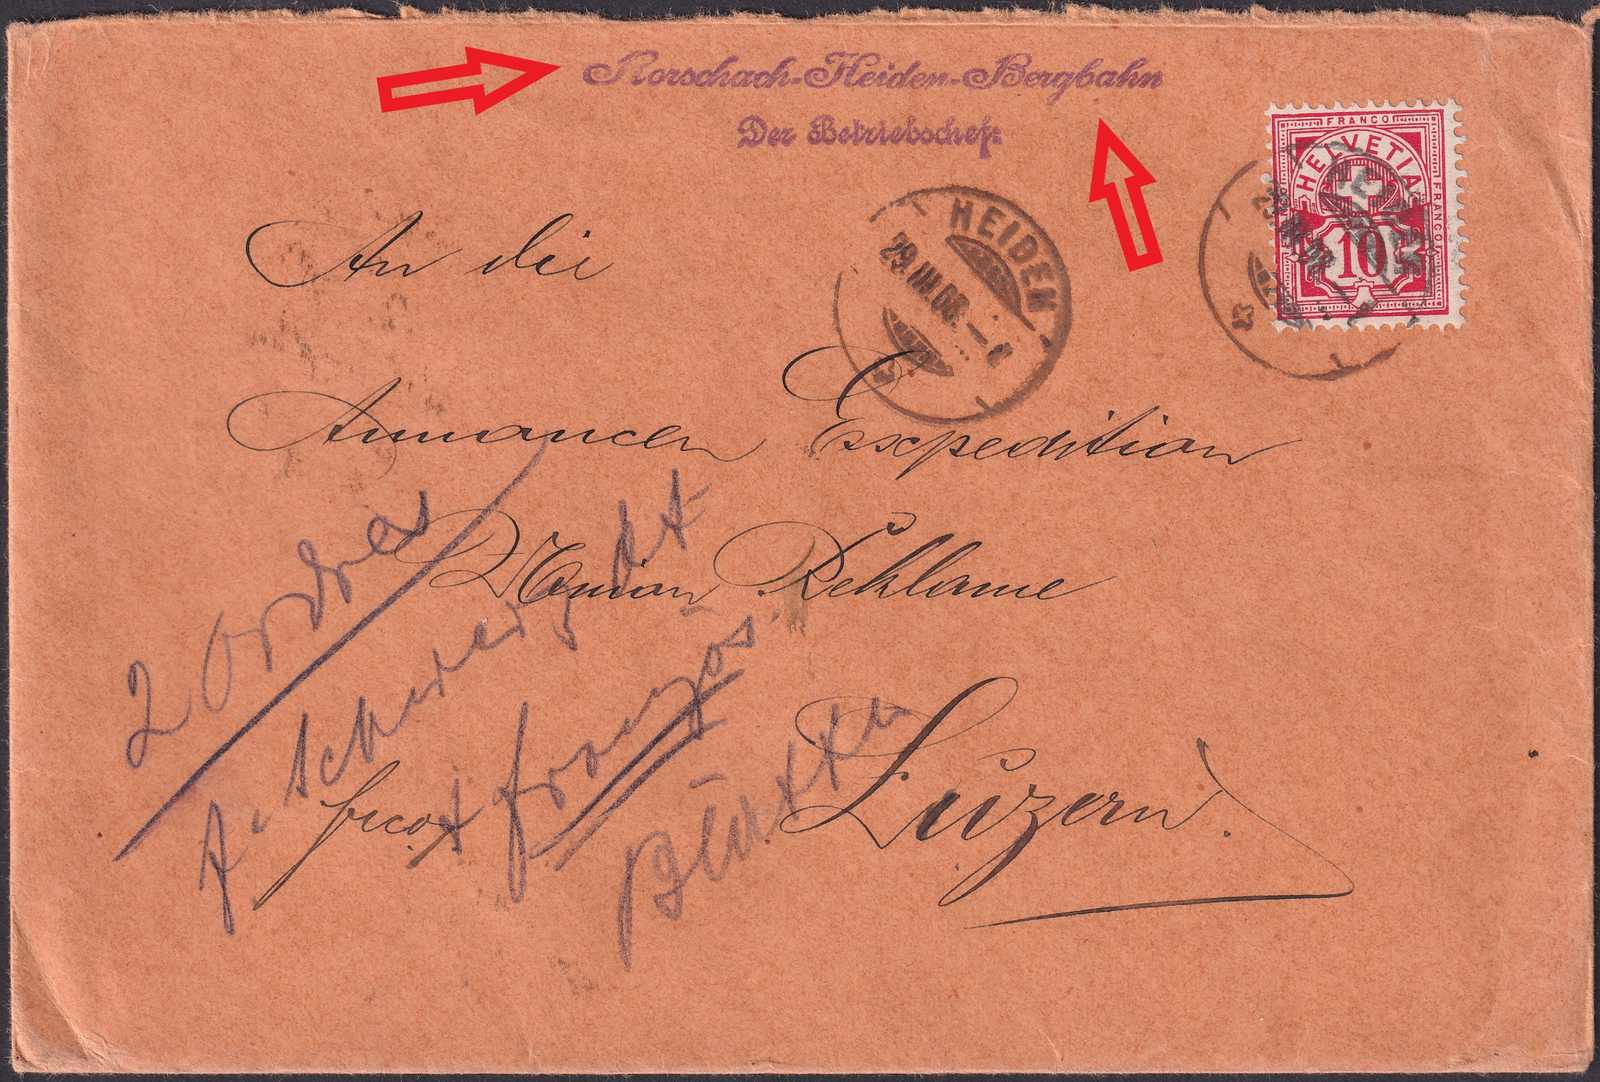 Rorschach-Heiden-Bergbahn
Der Betriebschef:
FRANCO
HELVETIA
FRANCO
10
HEIDEN
29.III.06.-
An die
Annoncen Expedition
Union Reklame
Luzern.
2 Ordres
f. schweiz
französ.
Blätter